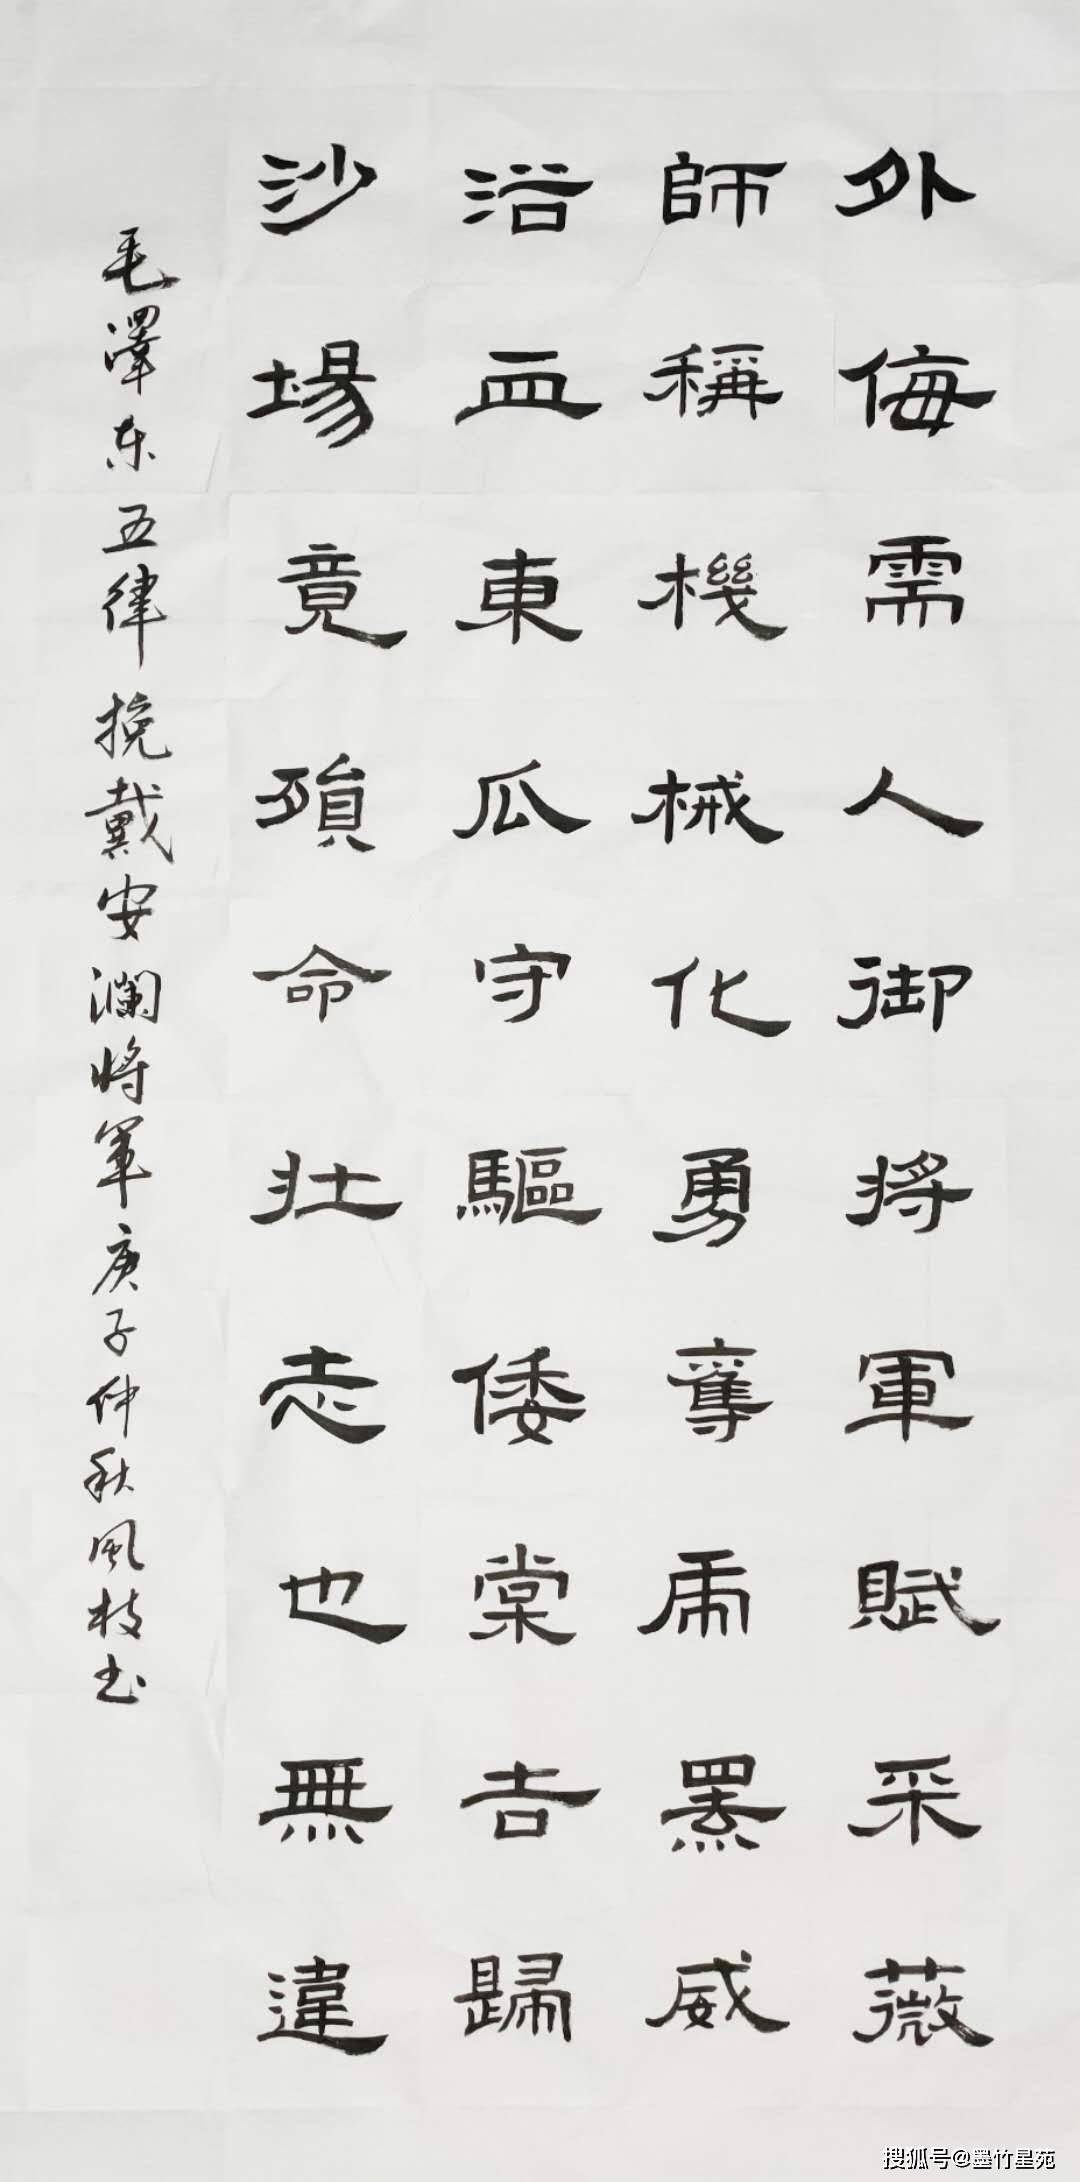 外侮需人御將軍賦采薇
師稱機械化勇奪虎羆威
浴血東瓜守驅倭棠吉歸
沙場竟殞命壯志也無違
毛澤东五律挽戴安瀾将軍庚子仲秋風枝书
搜狐号@墨竹星苑